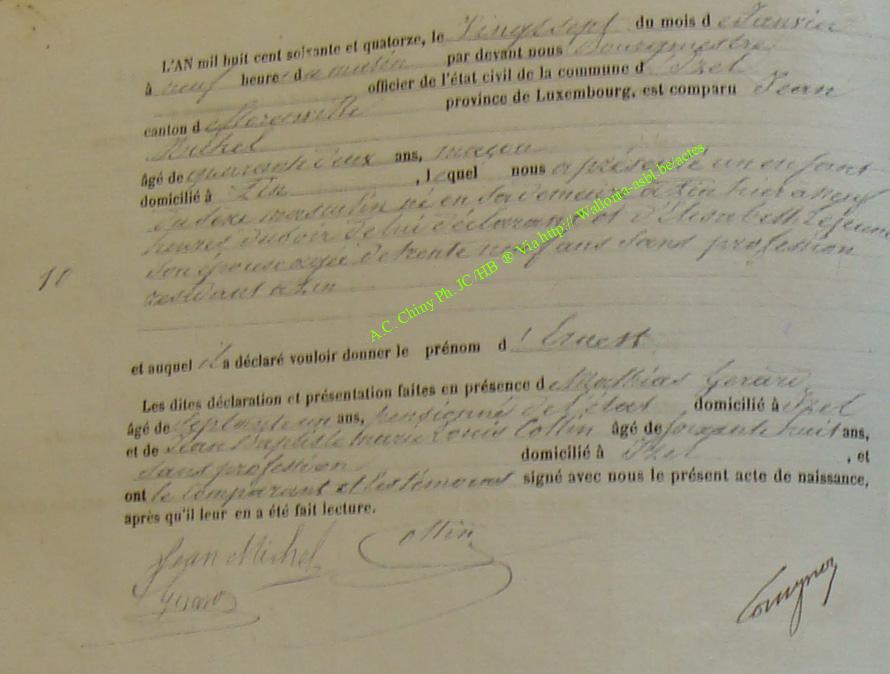 L'AN mil huit cent soixante et quatorze, le Vingt sept du mois de Janvier
à neuf heures du matin par devant nous Bourgmestre
officier de l'état civil de la commune d'Izel
canton de Florenville province de Luxembourg, est comparu Jean
Michel
âgé de quarante deux ans, maçon
domicilié à Pin , lequel nous a présenté un enfant
du sexe masculin né en sa demeure à Pin hier à neuf
heures du soir de lui déclarant et d'Elisabeth Lejeune
son épouse agée de trente neuf ans sans profession
résidant à Pin
10
et auquel il a déclaré vouloir donner le prénom d'Ernest
Les dites déclaration et présentation faites en présence de Mathias Gerard
âgé de Septante un ans, pensionné de l'état domicilié à Izel
et de Jean Baptiste Marie Louis Collin âgé de soixante huit ans,
sans profession domicilié à Izel , et
ont le comparant et les témoins signé avec nous le présent acte de naissance,
après qu'il leur en a été fait lecture.
Jean Michel Collin
Gerard
A.C. Chiny Ph. JC/HB ® Via http:// Wallonia-asbl.be/actes